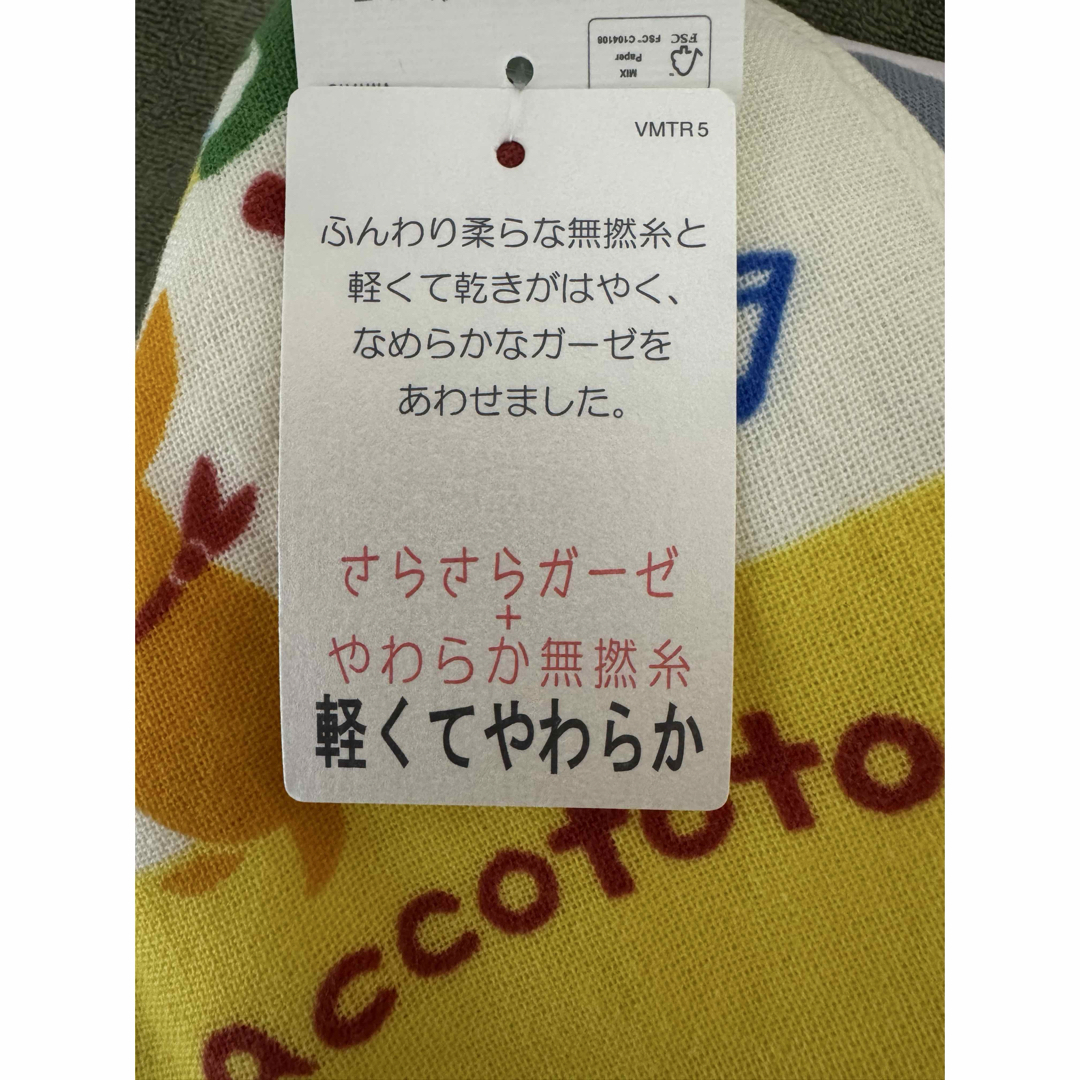 FSC
FSC™ C104106
MIX
Paper
VMTR 5
ふんわり柔らな無撚糸と
軽くて乾きがはやく、
なめらかなガーゼを
あわせました。
さらさらガーゼ
+
やわらか無撚糸
軽くてやわらか
Accototo